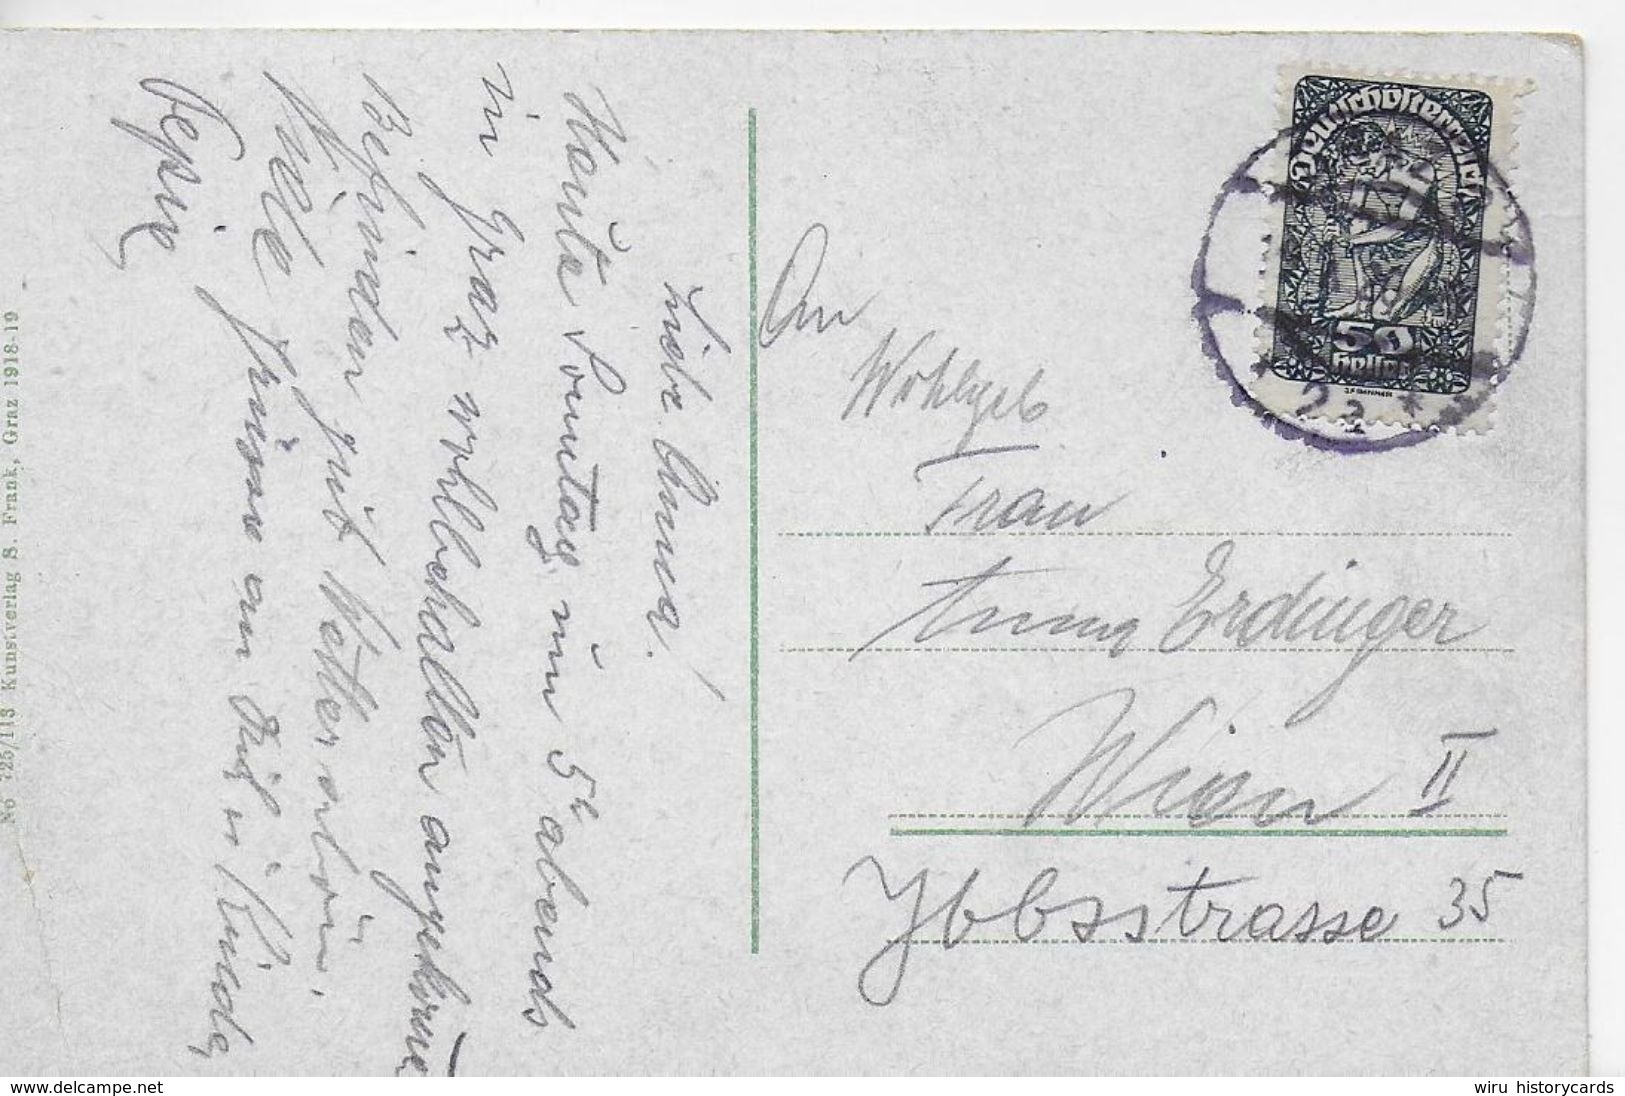 Liebe Anna!
Heute Sonntag um 5h abends
in Graz wohlbehalten angekommen
Befinden gut Wetter schön.
Viele Grüsse an Dich u Kinder
Pepi
An
Wohlgeb
Frau
Anna Erdinger
Wien II
Ybbsstrasse 35
Deutschösterreich
50
Heller
No 725/113 Kunstverlag S. Frank, Graz 1918-19
www.delcampe.net
wiru historycards